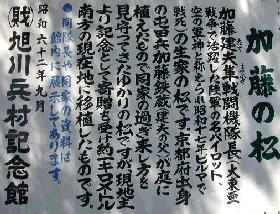 加藤の松
加藤建夫隼戦闘機隊長(大東亜
戦争で活躍した陸軍の名パイロット、
空の軍神と称えらる昭和十七年ビルマで
戦死)の生家の松です。京都府出身
の屯田兵加藤鉄蔵建夫の父が庭に
植えたもので同家の過ぎ来し方を
見守ってきたゆかりの松ですが現地主
より記念として寄贈を受け約一キロメートル
南方の現在地に移植したものです。
●同隊長や同家の資料は
館内に展示してあります。
昭和六十二年九月
(財)旭川兵村記念館